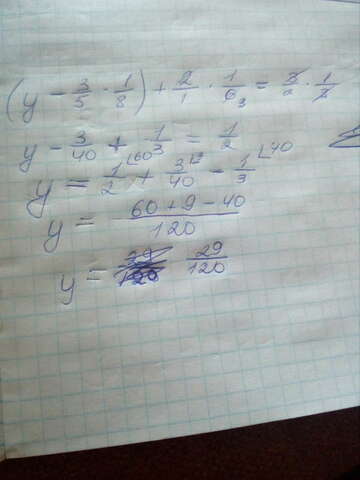 (y - 3/5 · 1/8) + 2/1 · 1/6 3 = 2/2 · 1/2
y - 3/40 + 1/3 = 1/2
y = 1/2 ⌊60 + 3/40 ⌊3 - 1/3 ⌊40
y = (60 + 9 - 40)/120
y = 29/120